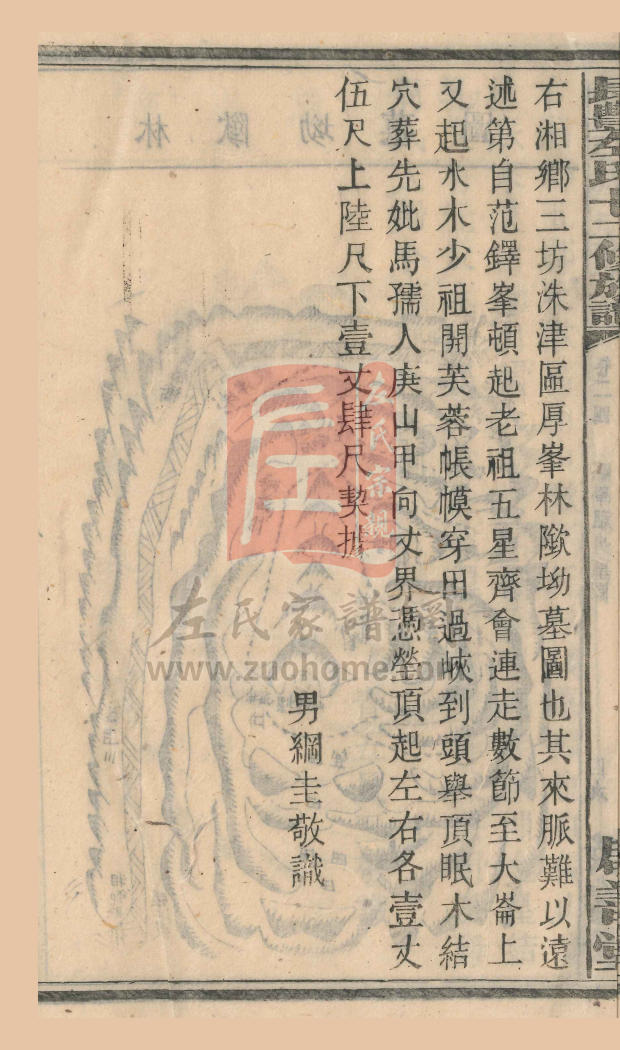 右湘鄉三坊洙津區厚峯林歐坳墓圖也其來脈難以遠
述第自范鐸峯頓起老祖五星齊會連走數節至大崙上
又起水木少祖開芙蓉帳幙穿田過峽到頭舉頂眠木結
穴葬先妣馬孺人庚山甲向丈界憑塋頂起左右各壹丈
伍尺上陸尺下壹丈肆尺契據
男綱圭敬識
左氏家譜網
www.zuohome.com
左氏宗親